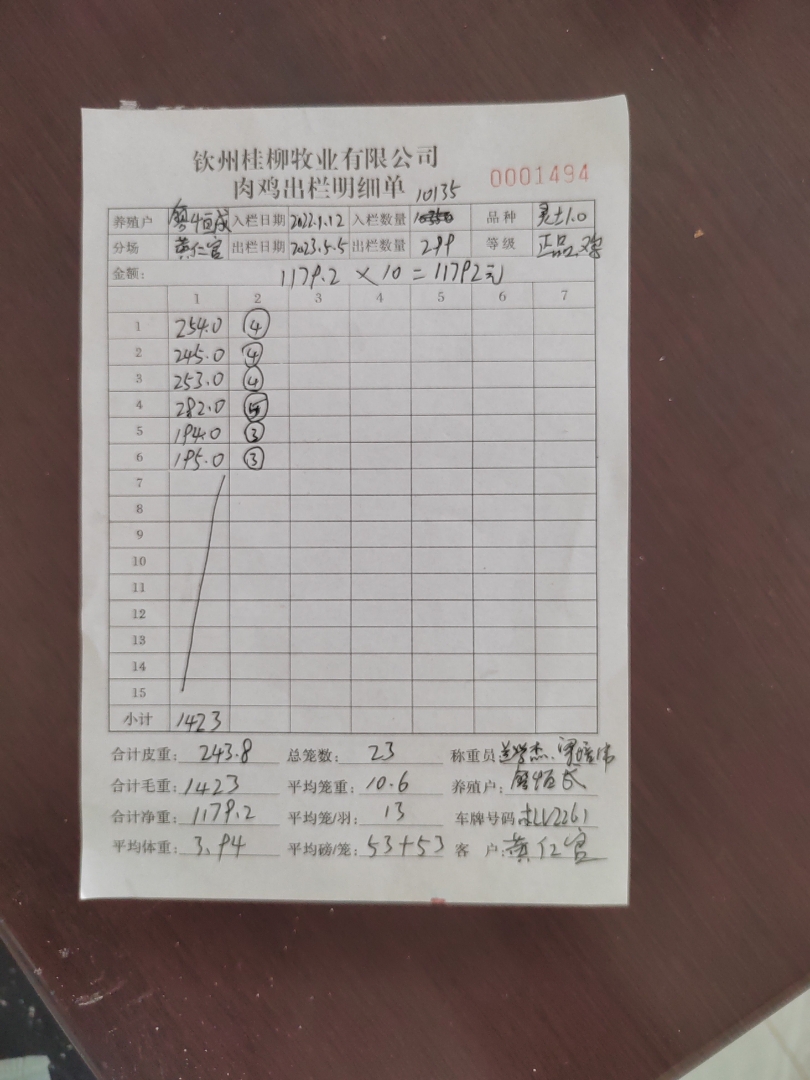 钦州桂柳牧业有限公司
肉鸡出栏明细单
0001494
10135
养殖户 入栏日期 2022.1.12 入栏数量 品种 灵土1.0
分场 黄仁官 出栏日期 2023.5.5 出栏数量 299 等级 正品
金额: 1179.2 × 10 = 11792元
1 2 3 4 5 6 7
1 254.0 ④
2 245.0 ④
3 253.0 ④
4 282.0 ⑤
5 194.0 ③
6 195.0 ③
7
8
9
10
11
12
13
14
15
小计 1423
合计皮重: 243.8 总笼数: 23 称重员
合计毛重: 1423 平均笼重: 10.6 养殖户:
合计净重: 1179.2 平均笼/羽: 13 车牌号码
平均体重: 3.94 平均磅/笼: 53+53 客户: 黄仁官